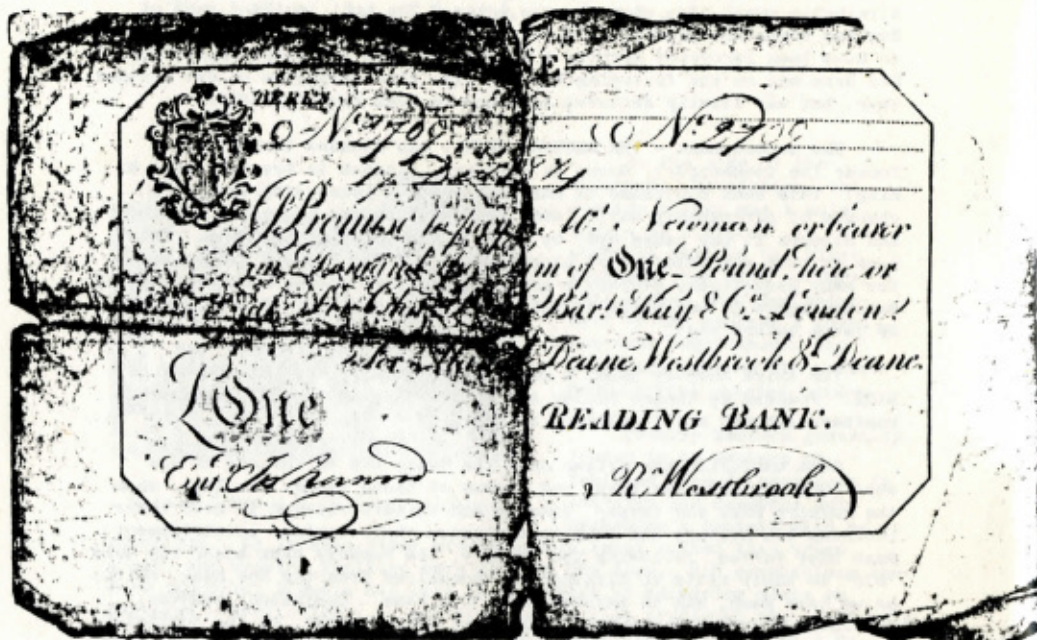 BERKS.
No. 2709 No. 2709
17 Dec
I Promise to pay Mr. Newman or bearer
on Demand the Sum of One Pound, here or
Bart. Kay & Co. London.
Deane, Westbrook & Deane.
£One READING BANK.
R Westbrook